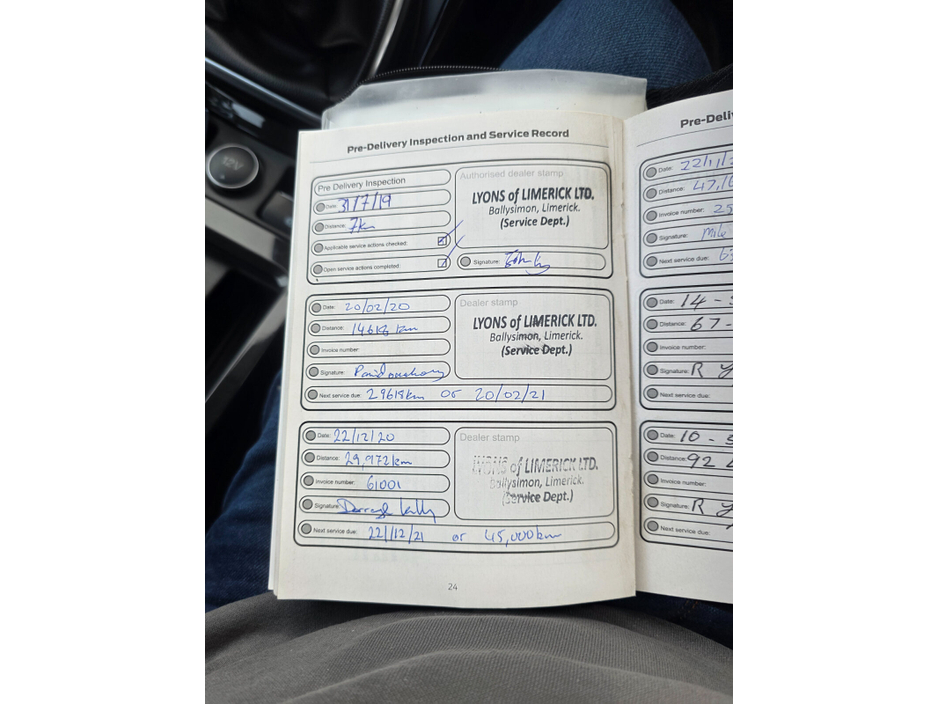 12V
Pre-Delivery Inspection and Service Record
Pre Delivery Inspection
Date: 31/7/19
Distance: 7km
Applicable service actions checked:
Open service actions completed:
Authorised dealer stamp
LYONS of LIMERICK LTD.
Ballysimon, Limerick.
(Service Dept.)
Signature:
Date: 20/02/20
Distance: 14618 km
Invoice number:
Signature:
Next service due: 29618km or 20/02/21
Dealer stamp
LYONS of LIMERICK LTD.
Ballysimon, Limerick.
(Service Dept.)
Date: 22/12/20
Distance: 29,972km
Invoice number: 61001
Signature:
Next service due: 22/12/21 or 45,000km
Dealer stamp
LYONS of LIMERICK LTD.
Ballysimon, Limerick.
(Service Dept.)
24
Pre-Deliv
Date: 22/11/2
Distance: 47,1
Invoice number: 25
Signature: Mile
Next service due: 6
Date: 14-
Distance: 67-
Invoice number:
Signature: R Y
Next service due:
Date: 10-
Distance: 92
Invoice number:
Signature: R Y
Next service due: